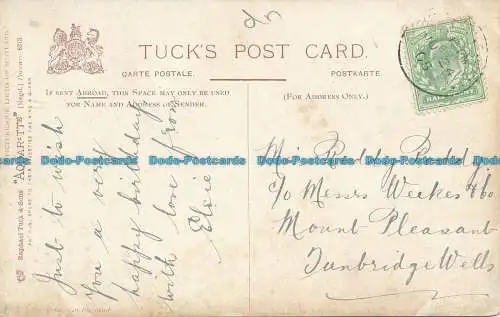 TUCK'S POST CARD.
CARTE POSTALE.
POSTKARTE.
IF SENT ABROAD, THIS SPACE MAY ONLY BE USED
FOR NAME AND ADDRESS OF SENDER.
(FOR ADDRESS ONLY.)
Raphael Tuck & Sons' "AQUARETTE" (Regd.)
Just to wish
you a very
happy birthday
with love from
Elsie
C/o Messrs Weekes & Co
Mount Pleasant
Tunbridge Wells
HALFPENNY
Dodo-Postcards Dodo-Postcards Dodo-Postcards Dodo-Postcards